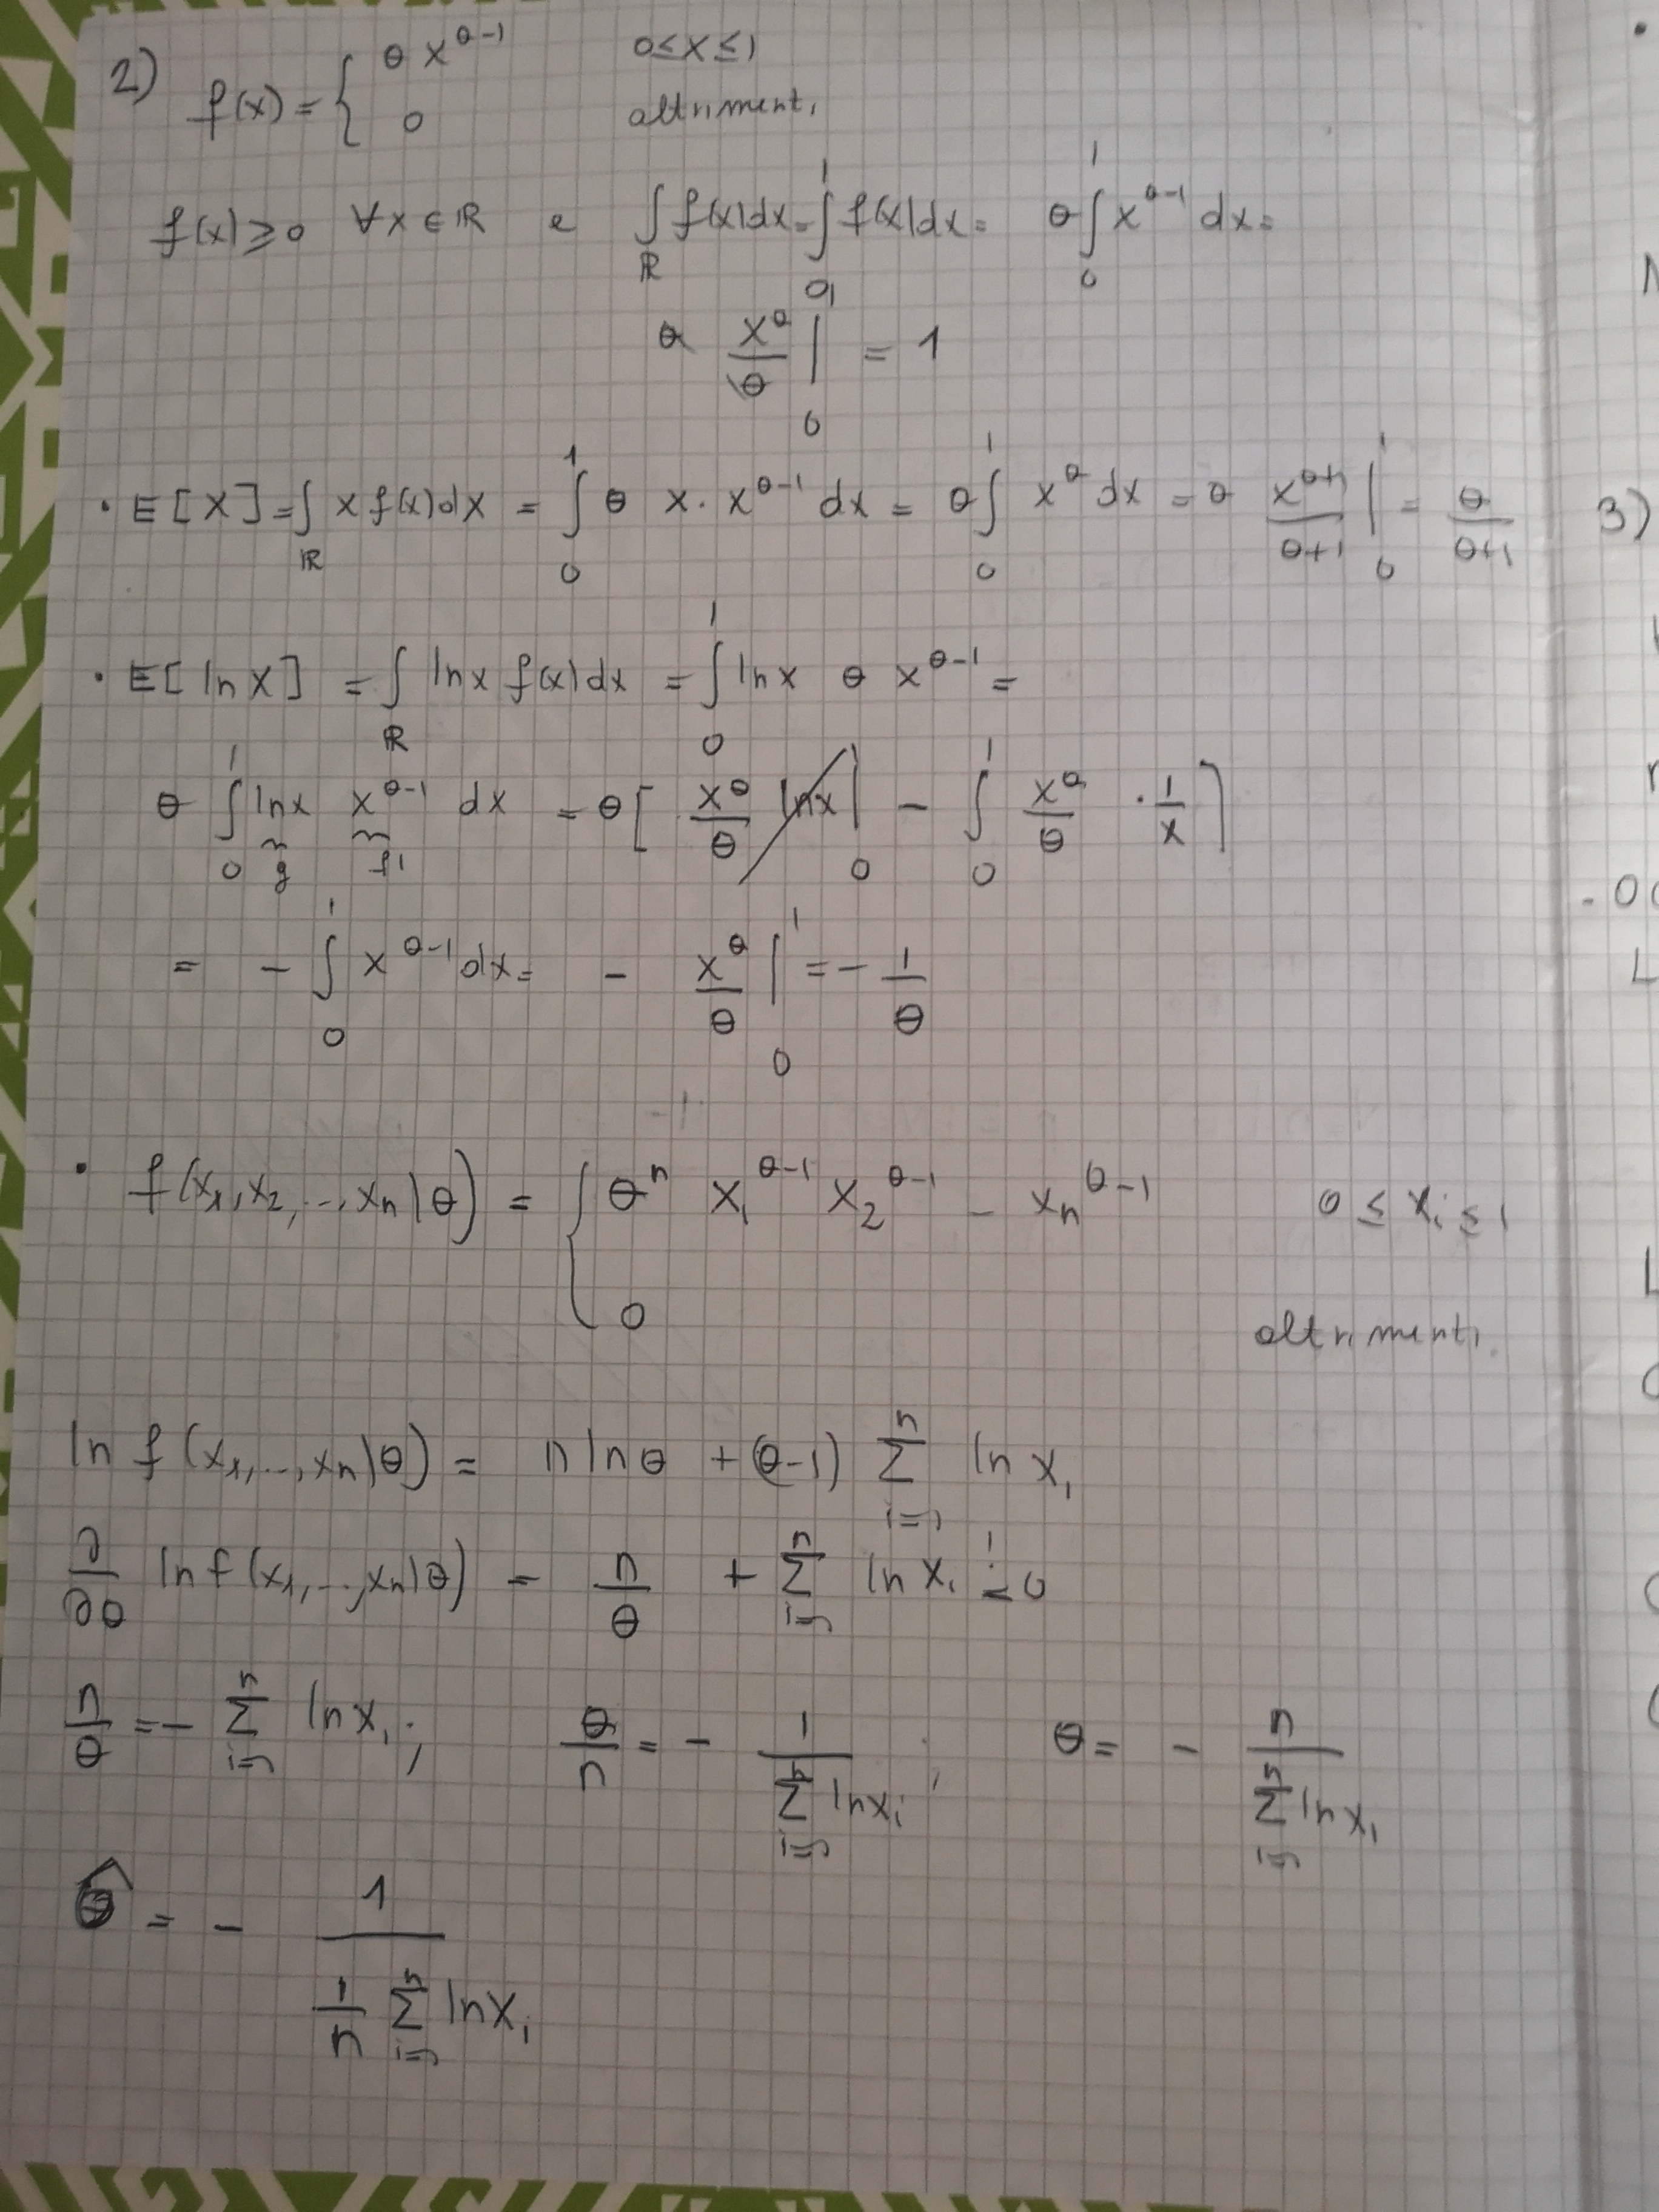 2) f(x) = { θ x^{θ-1}   0≤x≤1
0   altrimenti
f(x) ≥ 0 ∀x∈ℝ e ∫_ℝ f(x)dx = ∫_0^1 f(x)dx = θ∫_0^1 x^{θ-1} dx =
θ x^θ/θ |_0^1 = 1
• E[X] = ∫_ℝ x f(x)dx = ∫_0^1 θ x · x^{θ-1} dx = θ∫_0^1 x^θ dx = θ x^{θ+1}/(θ+1) |_0^1 = θ/(θ+1)
3)
• E[ln X] = ∫_ℝ ln x f(x)dx = ∫_0^1 ln x θ x^{θ-1} =
θ ∫_0^1 ln x x^{θ-1} dx = θ[ x^θ/θ ln x |_0^1 - ∫_0^1 x^θ/θ · 1/x ]
g f'
= - ∫_0^1 x^{θ-1} dx = - x^θ/θ |_0^1 = - 1/θ
• f(x_1, x_2, ..., x_n | θ) = { θ^n x_1^{θ-1} x_2^{θ-1} - x_n^{θ-1}   0 ≤ x_i ≤ 1
0   altrimenti
ln f(x_1, ..., x_n | θ) = n ln θ + (θ-1) Σ_{i=1}^n ln x_i
∂/∂θ ln f(x_1, ..., x_n | θ) = n/θ + Σ_{i=1}^n ln x_i =! 0
n/θ = - Σ_{i=1}^n ln x_i ; θ/n = - 1/(Σ_{i=1}^n ln x_i) ; θ = - n/(Σ_{i=1}^n ln x_i)
θ̂ = - 1/(1/n Σ_{i=1}^n ln x_i)